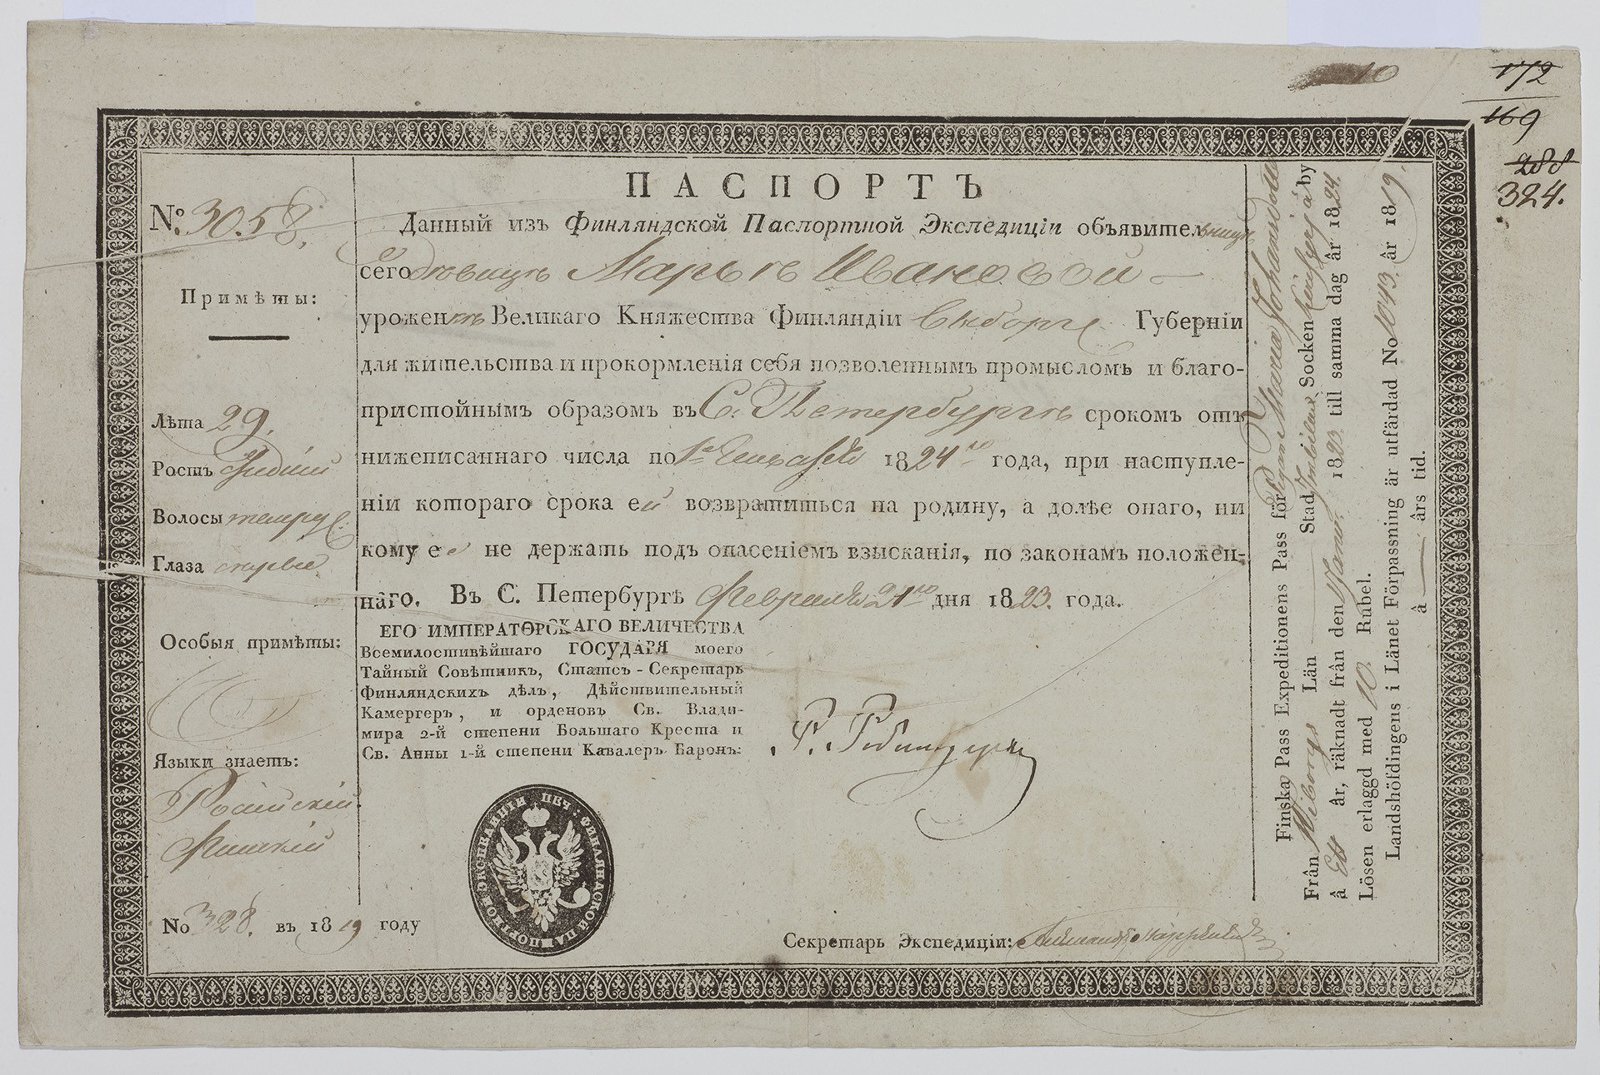 10
172
169
288
324.
ПАСПОРТЪ
№: 3058.
Данный изъ Финляндской Паспортной Экспедиціи объявительницѣ
сего дѣвицѣ Марьѣ Ивановой
уроженкѣ Великаго Княжества Финляндіи Выборгс. Губерніи
для жительства и прокормленія себя позволеннымъ промысломъ и благо-
пристойнымъ образомъ въ С. Петербургѣ срокомъ отъ
нижеписаннаго числа по 1824го года, при наступле-
ніи котораго срока ей возвратиться на родину, а долѣе онаго, ни
кому ее не держать подъ опасеніемъ взысканія, по законамъ положен-
наго. Въ С. Петербургѣ Февраля 21го дня 1823. года.
Примѣты:
Лѣта 29.
Ростъ средній
Волосы темрус.
Глаза сѣрые
Особыя примѣты:
Языки знаетъ:
Россійскій
Финскій
No 328. въ 1819 году
ЕГО ИМПЕРАТОРСКАГО ВЕЛИЧЕСТВА
Всемилостивѣйшаго ГОСУДАРЯ моего
Тайный Совѣтникъ, Статсъ-Секретарь
Финляндскихъ дѣлъ, Дѣйствительный
Камергеръ, и орденовъ Св. Влади-
мира 2-й степени Большаго Креста и
Св. Анны 1-й степени Кавалеръ Баронъ:
Р. Ребиндеръ
ПЕЧ. ФИНЛЯНДСКОЙ ПАСПОРТНОЙ ЭКСПЕДИЦІИ
Секретарь Экспедиціи:
Finska Pass Expeditionens Pass för Maria Johansdotter
Från Wiborgs Län Stad Socken by
å Ett år, räknadt från den 1823 till samma dag år 1824.
Lösen erlaggd med 10 Rubel.
Landshöfdingens i Länet Förpassning är utfärdad No 1043. år 1819.
å års tid.